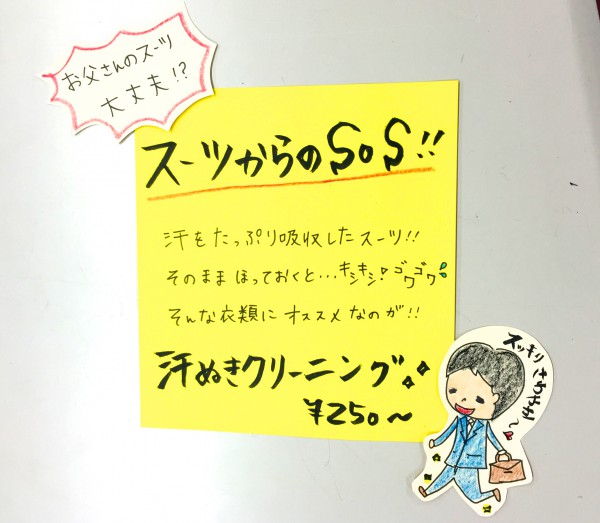 お父さんのスーツ
大丈夫!?
スーツからのSOS!!
汗をたっぷり吸収したスーツ!!
そのままほっておくと…キシキシ・ゴワゴワ
そんな衣類にオススメなのが!!
汗ぬきクリーニング
¥250〜
スッキリさわやか〜